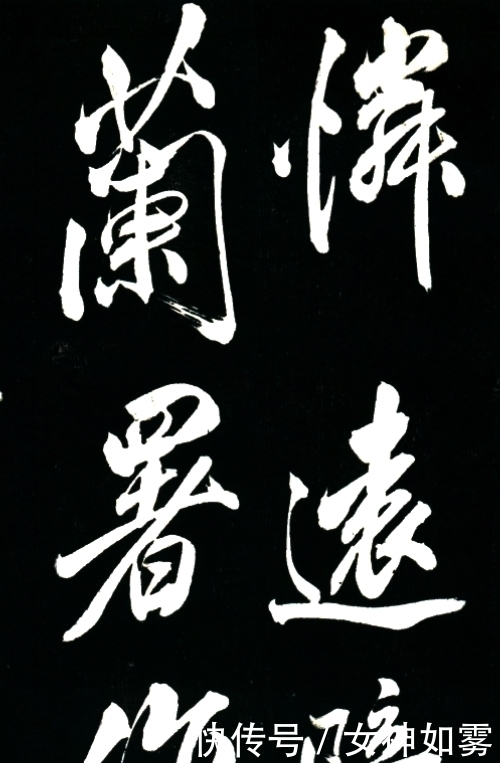 憐遠
蘭署
快传号 / 女神如雾